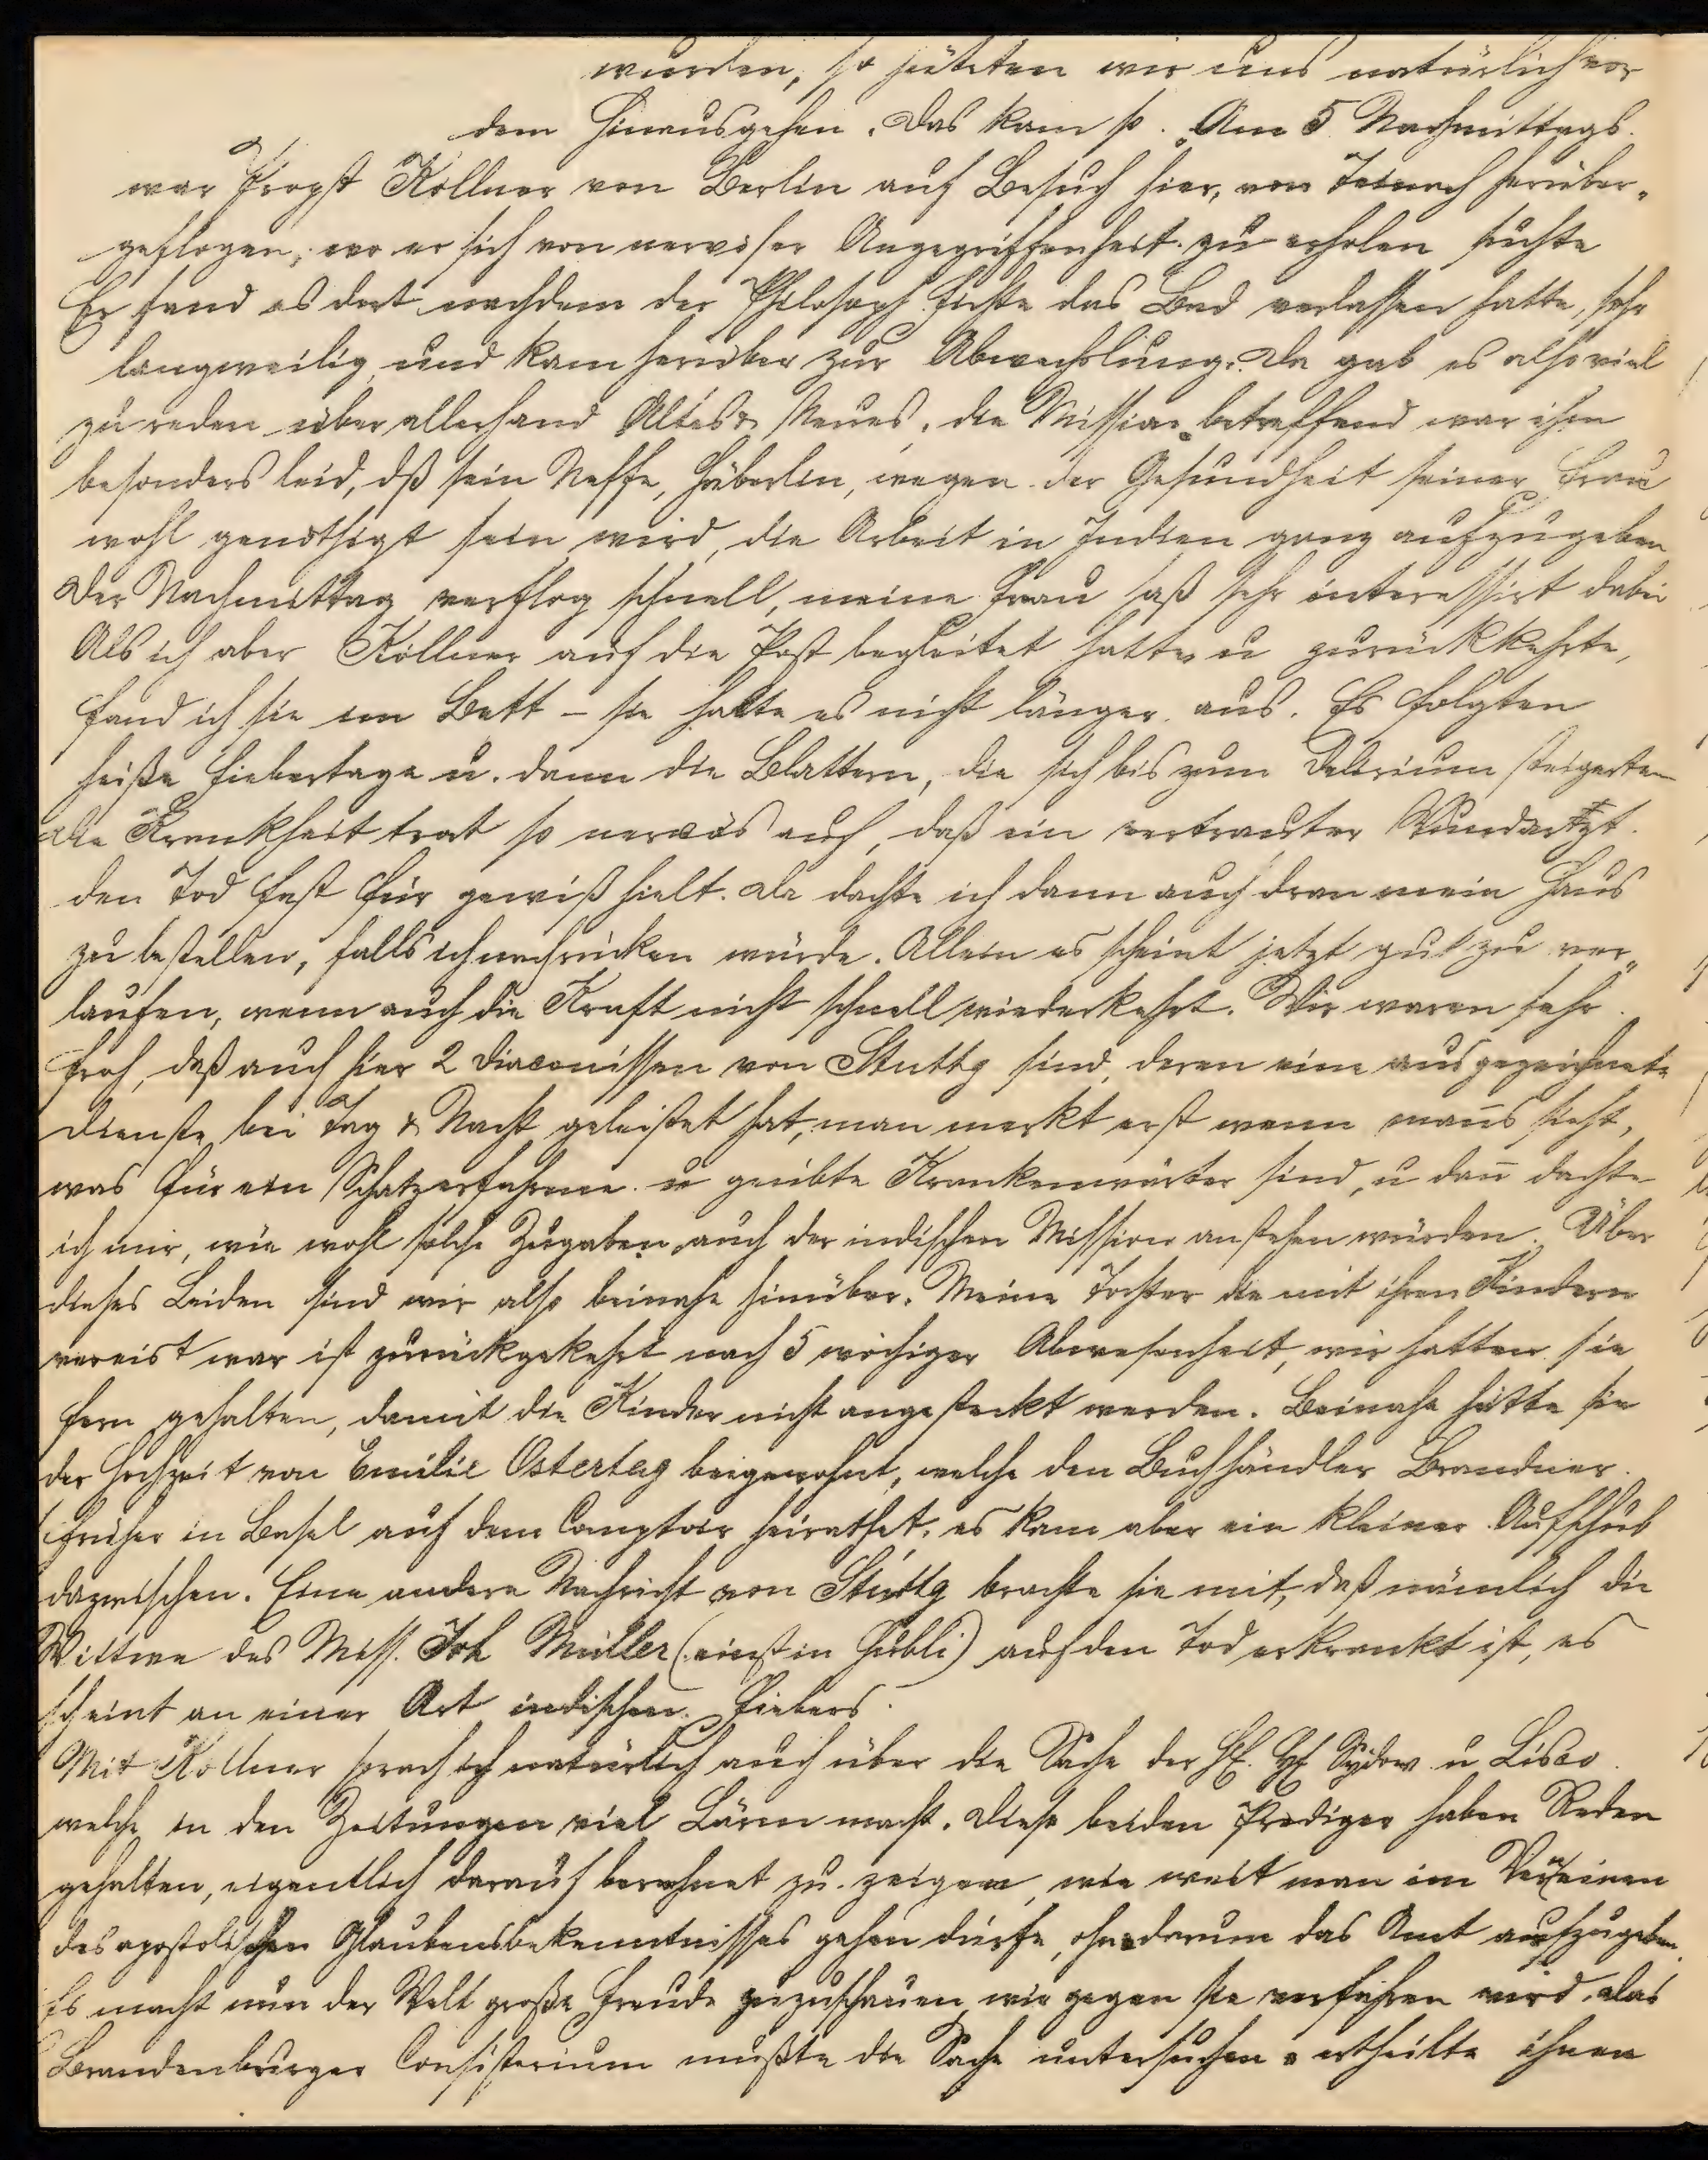 wurden, so hüteten wir uns natürlich vor
dem Hinausgehen. Das kam so. Am 5 Nachmittags
war Propst Köllner von Berlin auf Besuch hier, von Teinach herüber-
geflogen, wo er sich von nervöser Angegriffenheit zu erholen suchte
Er fand es dort nachdem der Philosoph Fichte das Bad verlassen hatte, sehr
langweilig und kam herüber zur Abwechslung. Da gab es also viel
zu reden über allerhand Altes & Neues, die Mission betreffend war ihm
besonders leid, dß sein Neffe, Häberlin, wegen der Gesundheit seiner Frau
wohl genöthigt sein wird, die Arbeit in Indien ganz aufzugeben
Der Nachmittag verflog schnell, meine Frau saß sehr interessirt dabei
Als ich aber Köllner auf die Post begleitet hatte u zurückkehrte,
fand ich sie im Bett – sie hatte es nicht länger aus. Es folgten
heiße Fiebertage u. dann die Blattern, die sich bis zum Delirium steigerten
Die Krankheit trat so nervös auf, daß ein vertrauter Wundarzt
den Tod fast für gewiß hielt. Da dachte ich dann auch dran mein Haus
zu bestellen, falls ich nachrücken würde. Allein es scheint jetzt gut zu ver-
laufen, wenn auch die Kraft nicht schnell wiederkehrt. Wir waren sehr
froh, daß auch hier 2 Diaconissen von Stuttg sind, deren eine ausgezeichnete
Dienste bei Tag & Nacht geleistet hat, man merkt erst wenn mans sieht,
was für ein Schatz erfahrene u geübte Krankenwärter sind, u dan̄ dachte
ich mir, wie wohl solche Zugaben auch der indischen Mission anstehen würden. Über
dieses Leiden sind wir also beinahe hinüber. Meine Tochter die mit ihren Kindern
verreist war ist zurückgekehrt nach 5 wöchiger Abwesenheit, wir hatten sie
fern gehalten, damit die Kinder nicht angesteckt werden. Beinahe hätte sie
der Hochzeit von Emilie Ostertag beigewohnt, welche den Buchhändler Brandner
früher in Basel auf dem Comptoir heirathet, es kam aber ein kleiner Aufschub
dazwischen. Eine andere Nachricht von Stuttg brachte sie mit, daß nämlich die
Wittwe des Miss. Joh Müller (einst in Hubli) auf den Tod erkrankt ist, es
scheint an einer Art indischen Fiebers.
Mit Köllner sprach ich natürlich auch über die Sache der HE. HE Sydow u Lisco
welche in den Zeitungen viel Lärm macht. Diese beiden Prediger haben Reden
gehalten, eigentlich darauf berechnet zu zeigen, wie weit man im Verneinen
des apostolischen Glaubensbekenntnisses gehen dürfe, ohne darum das Amt aufzugeben.
Es macht nun der Welt große Freude zuzuschauen, wie gegen sie verfahren wird. Das
Brandenburger Consistorium mußte die Sache untersuchen & ertheilte ihnen